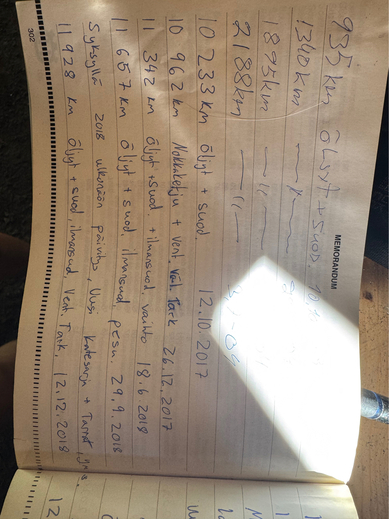 MEMORANDUM
935 km Öljyt + Suod
1340 km — 11 —
1895 km — 11 —
2188 km — 11 —
10 233 km Öljyt + suod. 12.10.2017
10 962 km Nokkaketju + vent. Tark 26.12.2017
11 342 km Öljyt + suod. + ilmansuod. vaihto 18.6.2018
11 657 km Öljyt + suod, ilmansuod. pesu 29.9.2018
Syksyllä 2018 ulkonäön päivitys, Uusi Katesarja + Tarrat, jne.
11 928 km Öljyt + suod, ilmansuod. Vent. Tark, 12.12.2018
302
12